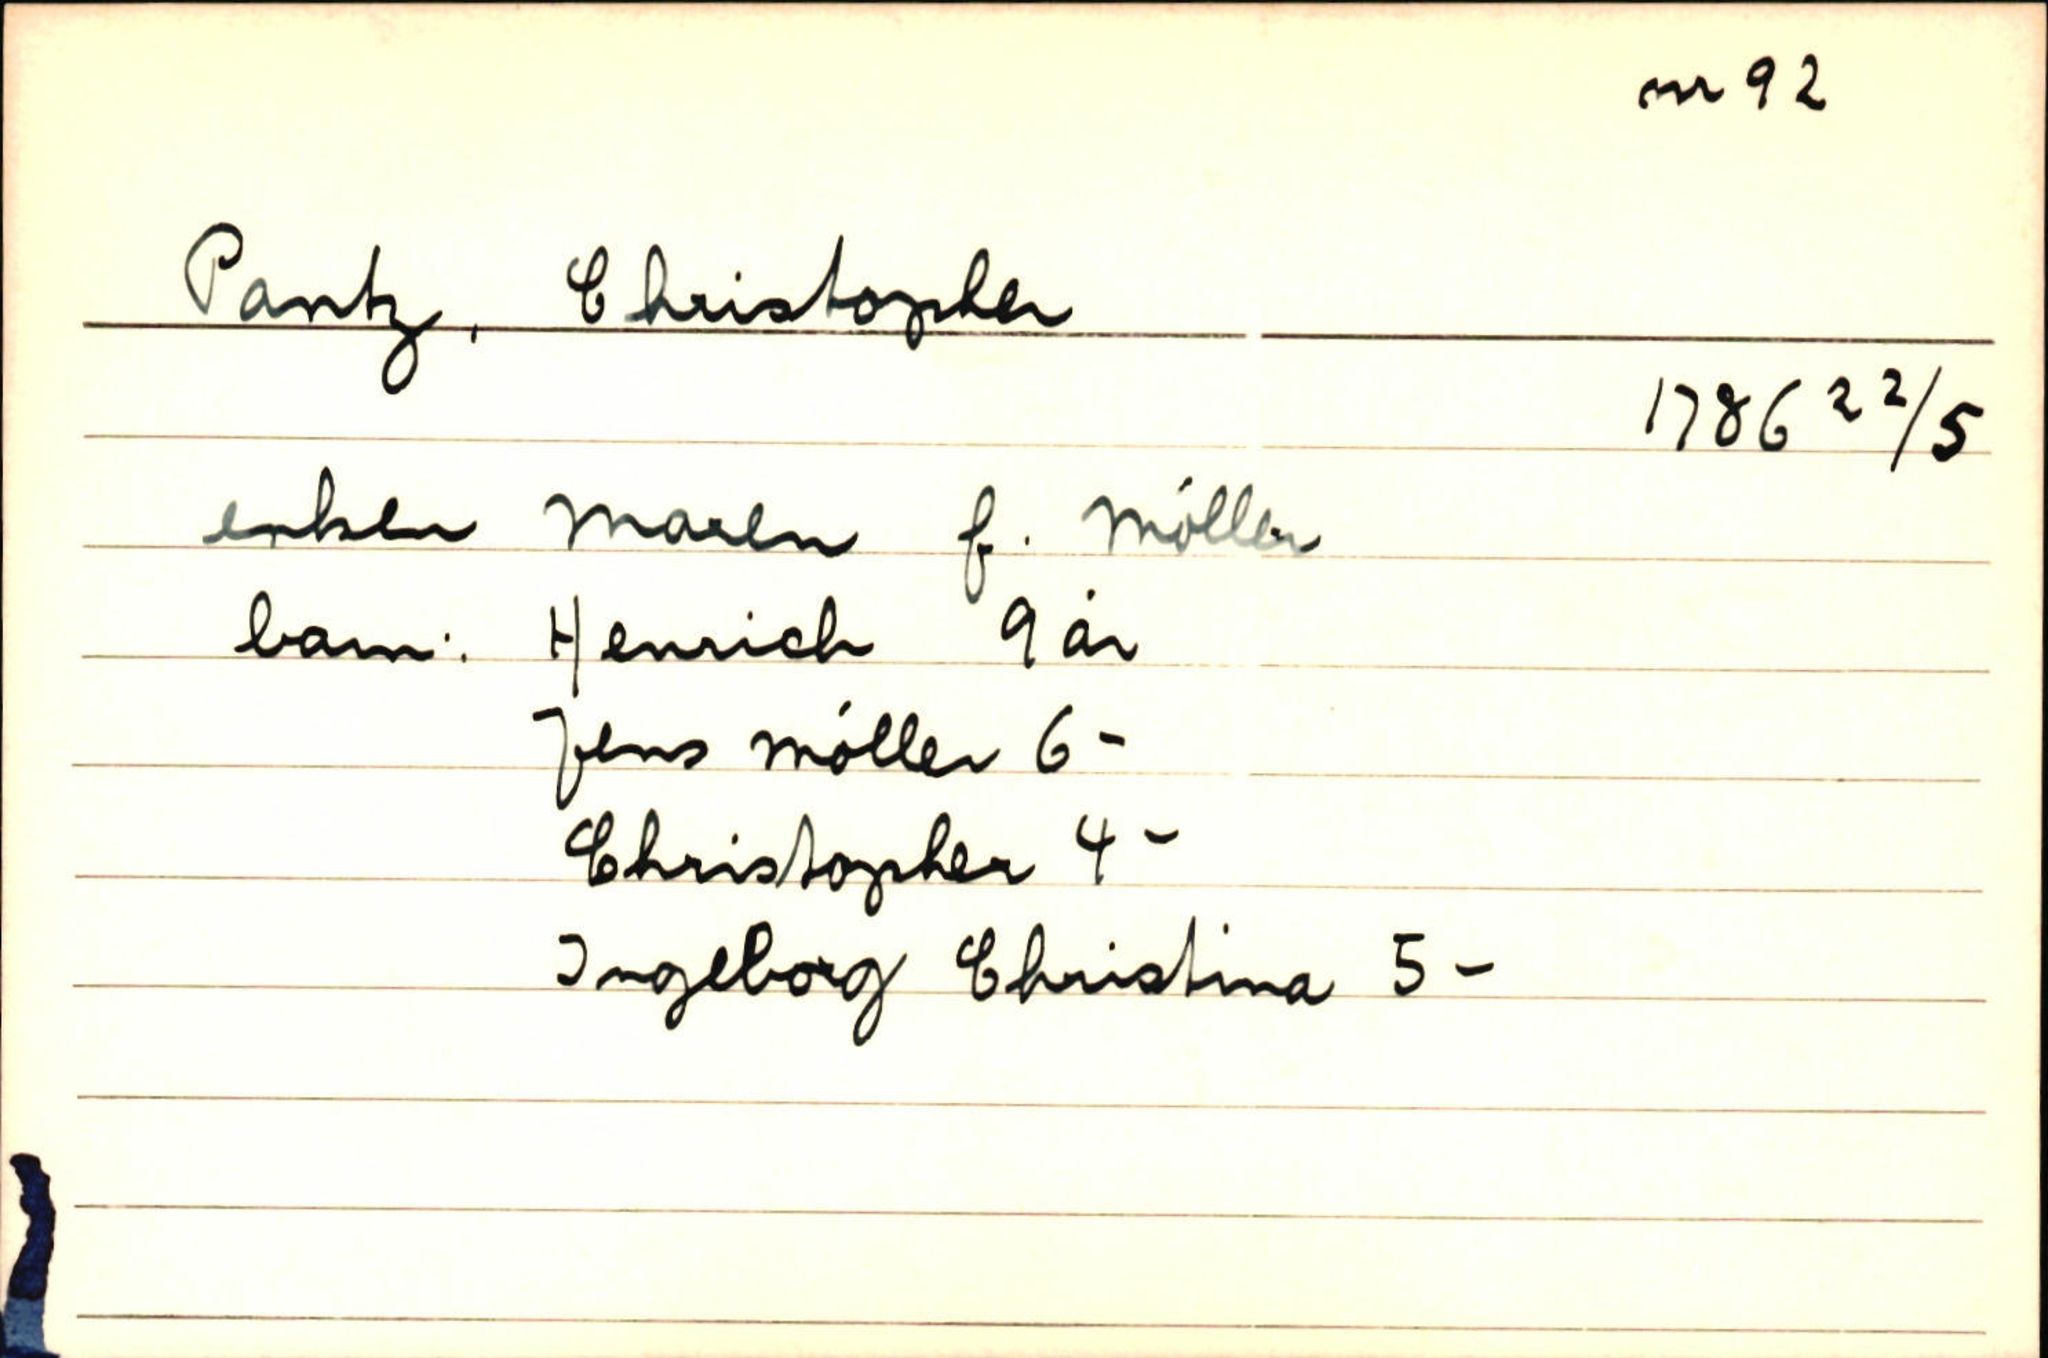 nr 92
Pantz, Christopher
1786 22/5
enken Maren f. Møller
barn: Henrich 9 år
Jens Møller 6 -
Christopher 4 -
Ingeborg Christina 5 -